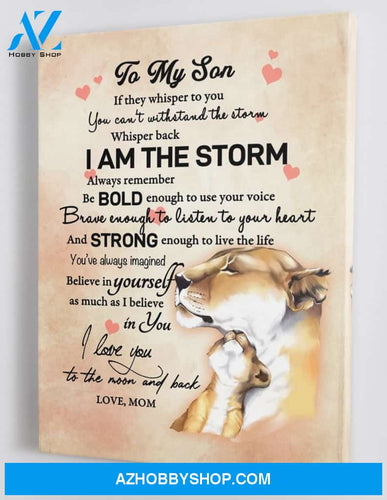 AZ
HOBBY SHOP
To My Son
If they whisper to you
You can't withstand the storm
Whisper back
I AM THE STORM
Always remember
Be BOLD enough to use your voice
Brave enough to listen to your heart
And STRONG enough to live the life
You've always imagined
Believe in yourself
as much as I believe
in You
I love you
to the moon and back
LOVE, MOM
AZHOBBYSHOP.COM